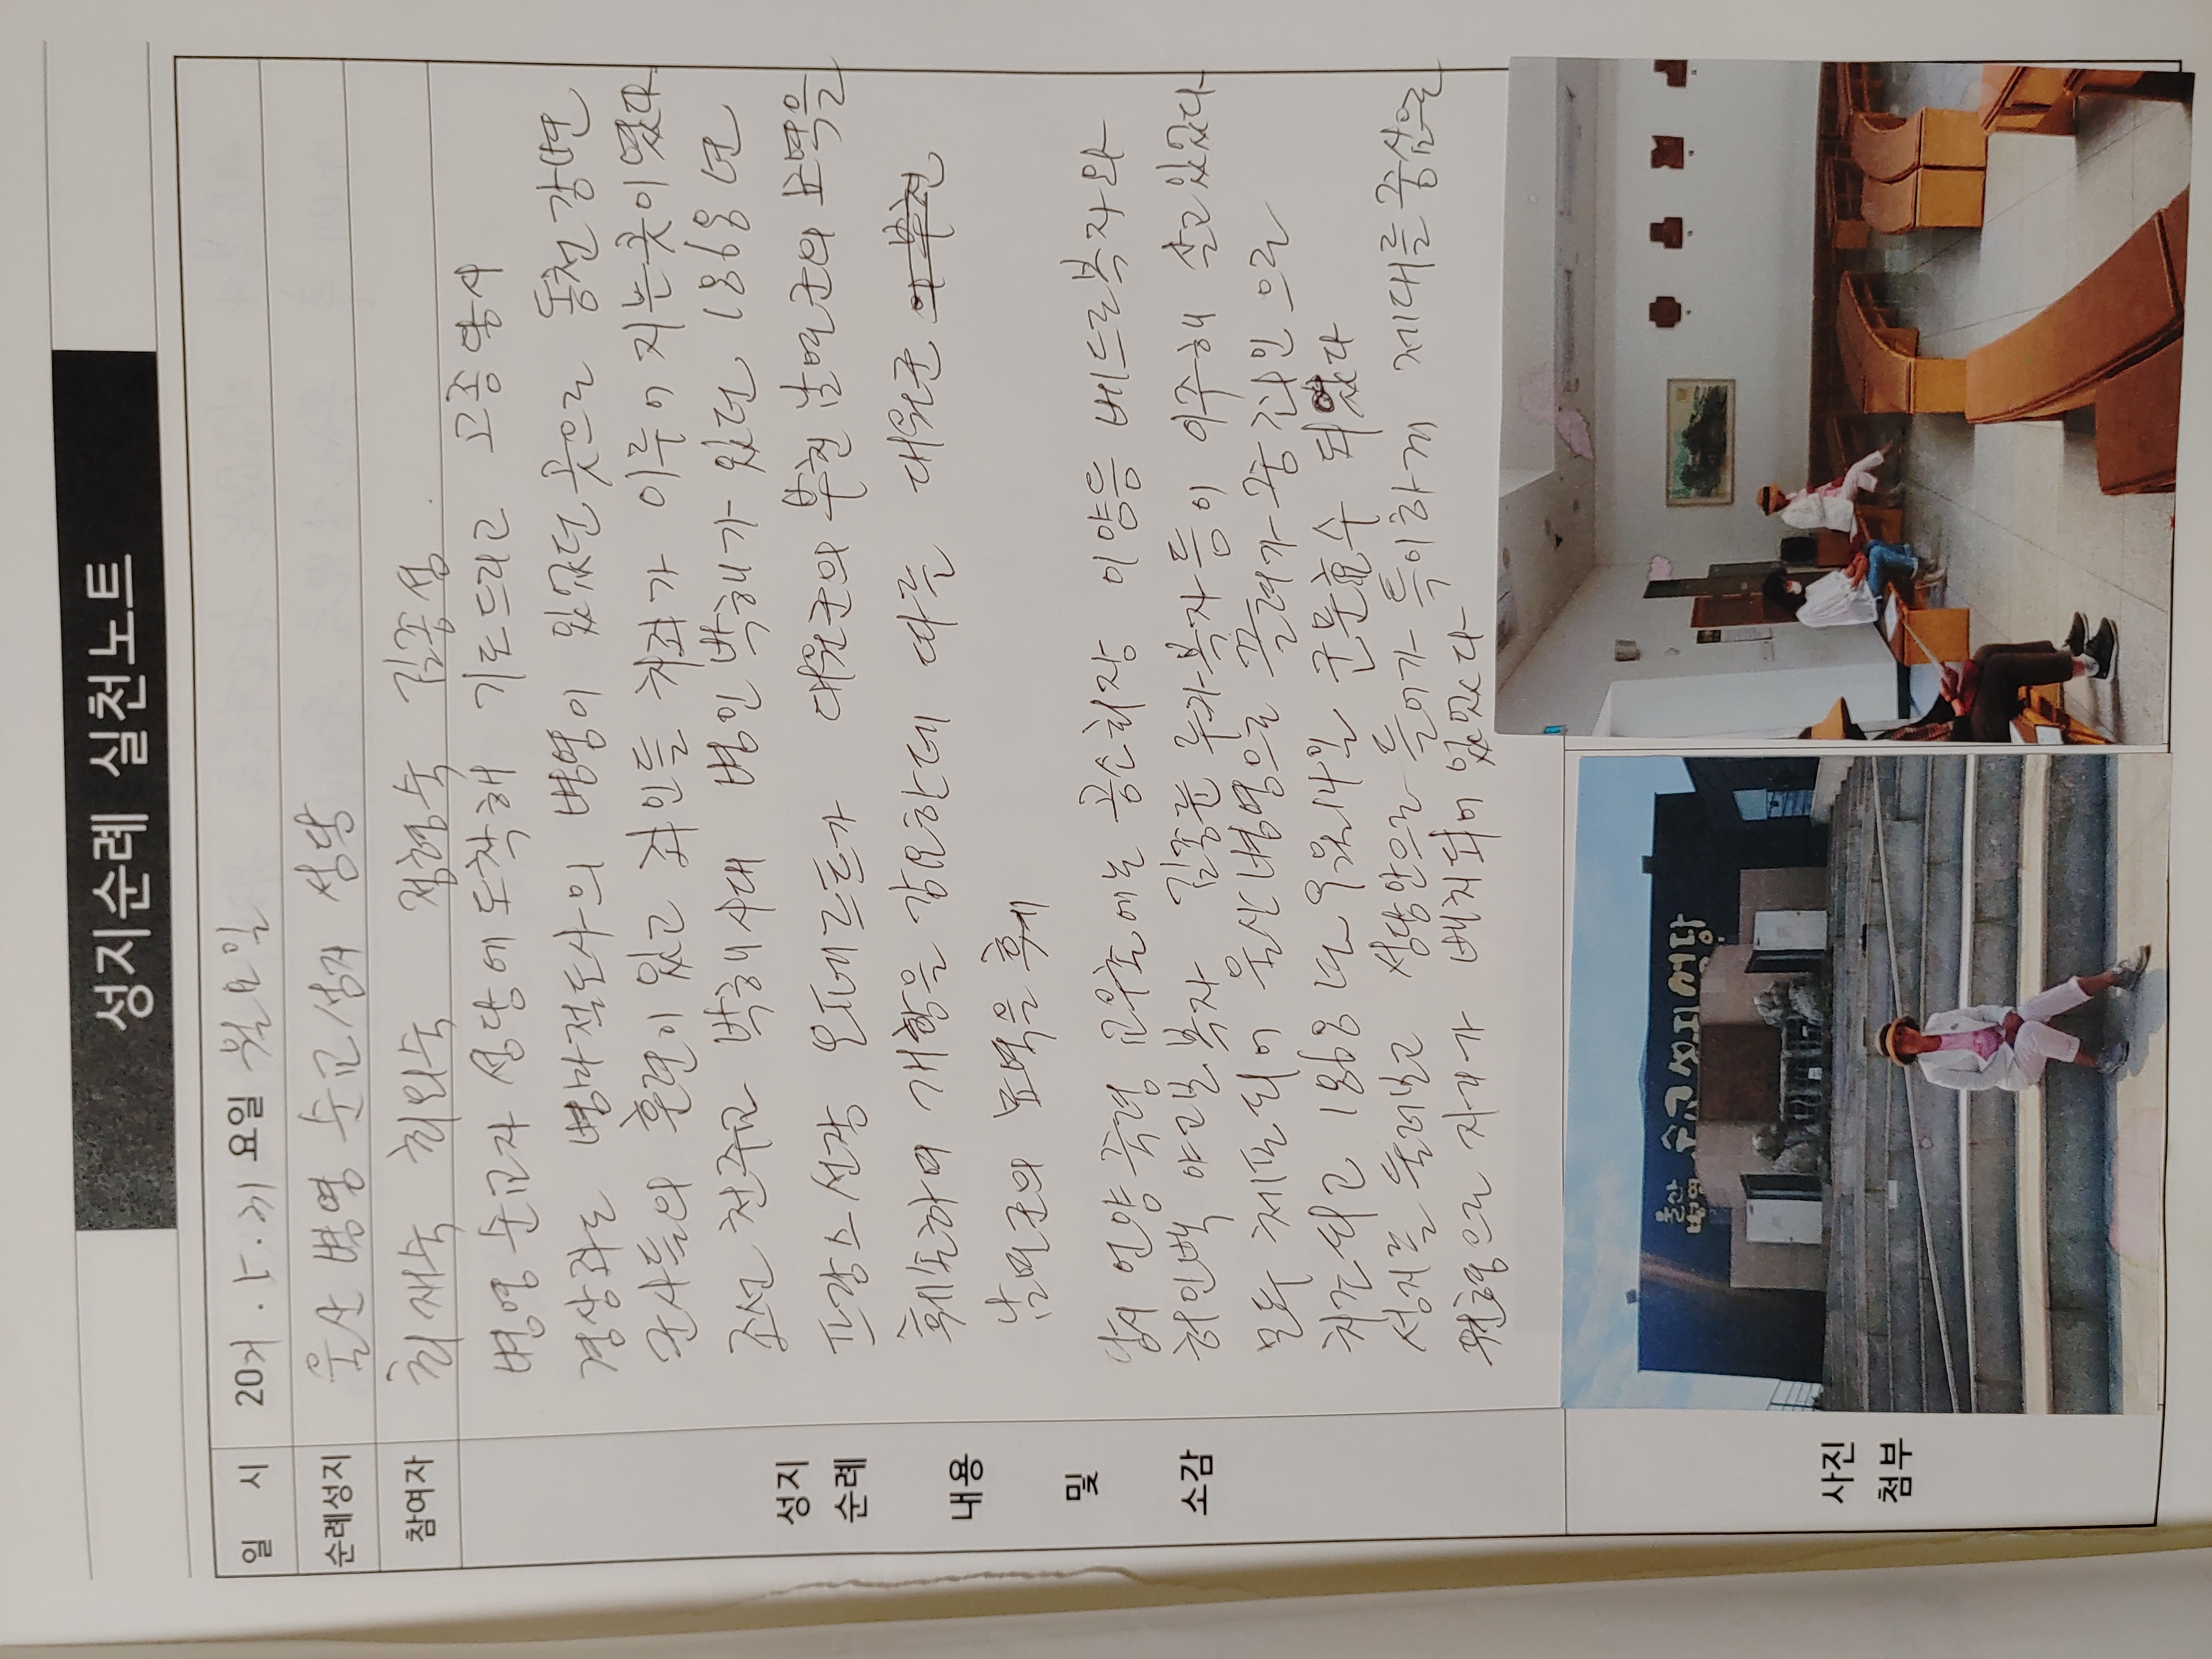 성지순례 실천노트
일 시 2021. 5. 31 요일 월요일
순례성지 울산 병영 순교성지 성당
참여자 최재숙 최외숙 정형숙 김종성
병영 순교자 성당에 도착해 기도드리고 고종당시
경상좌도 병마절도사의 병영이 있었던 곳으로 동천강변
군사들의 훈련이 있고 죄인들 처죄가 이루어 지는곳이였다
조선 천주교 박해시대 병인박해가 있던 1868년
프랑스선장 오페르트가 대원군의 부친 남연군의 묘역을
훼손하며 개항을 강요한데 따른 대원군 의 부친
남연군의 묘역을 훼
당시 언양 죽령 교우촌에는 공소회장 이양등 베드로복자와
허인백 야고보 복자 김종륜 루카복자 등이 이주해 살고있었다
모두 체포되어 울산병영으로 끌려가 중죄인 으로
치조되고 1868년 9월14일 군문효수 되었다
성지를 둘러보고 성당안으로 들어가 특이하게 제대를 중심으로
원형으로 자리가 배치되어 있었다
성지
순례
내용
및
소감
사진
첨부
울산
병영 순교성지성당